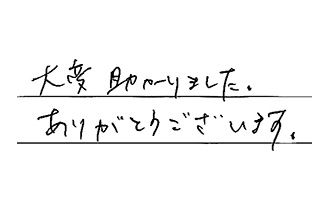 大変助かりました。
ありがとうございます。